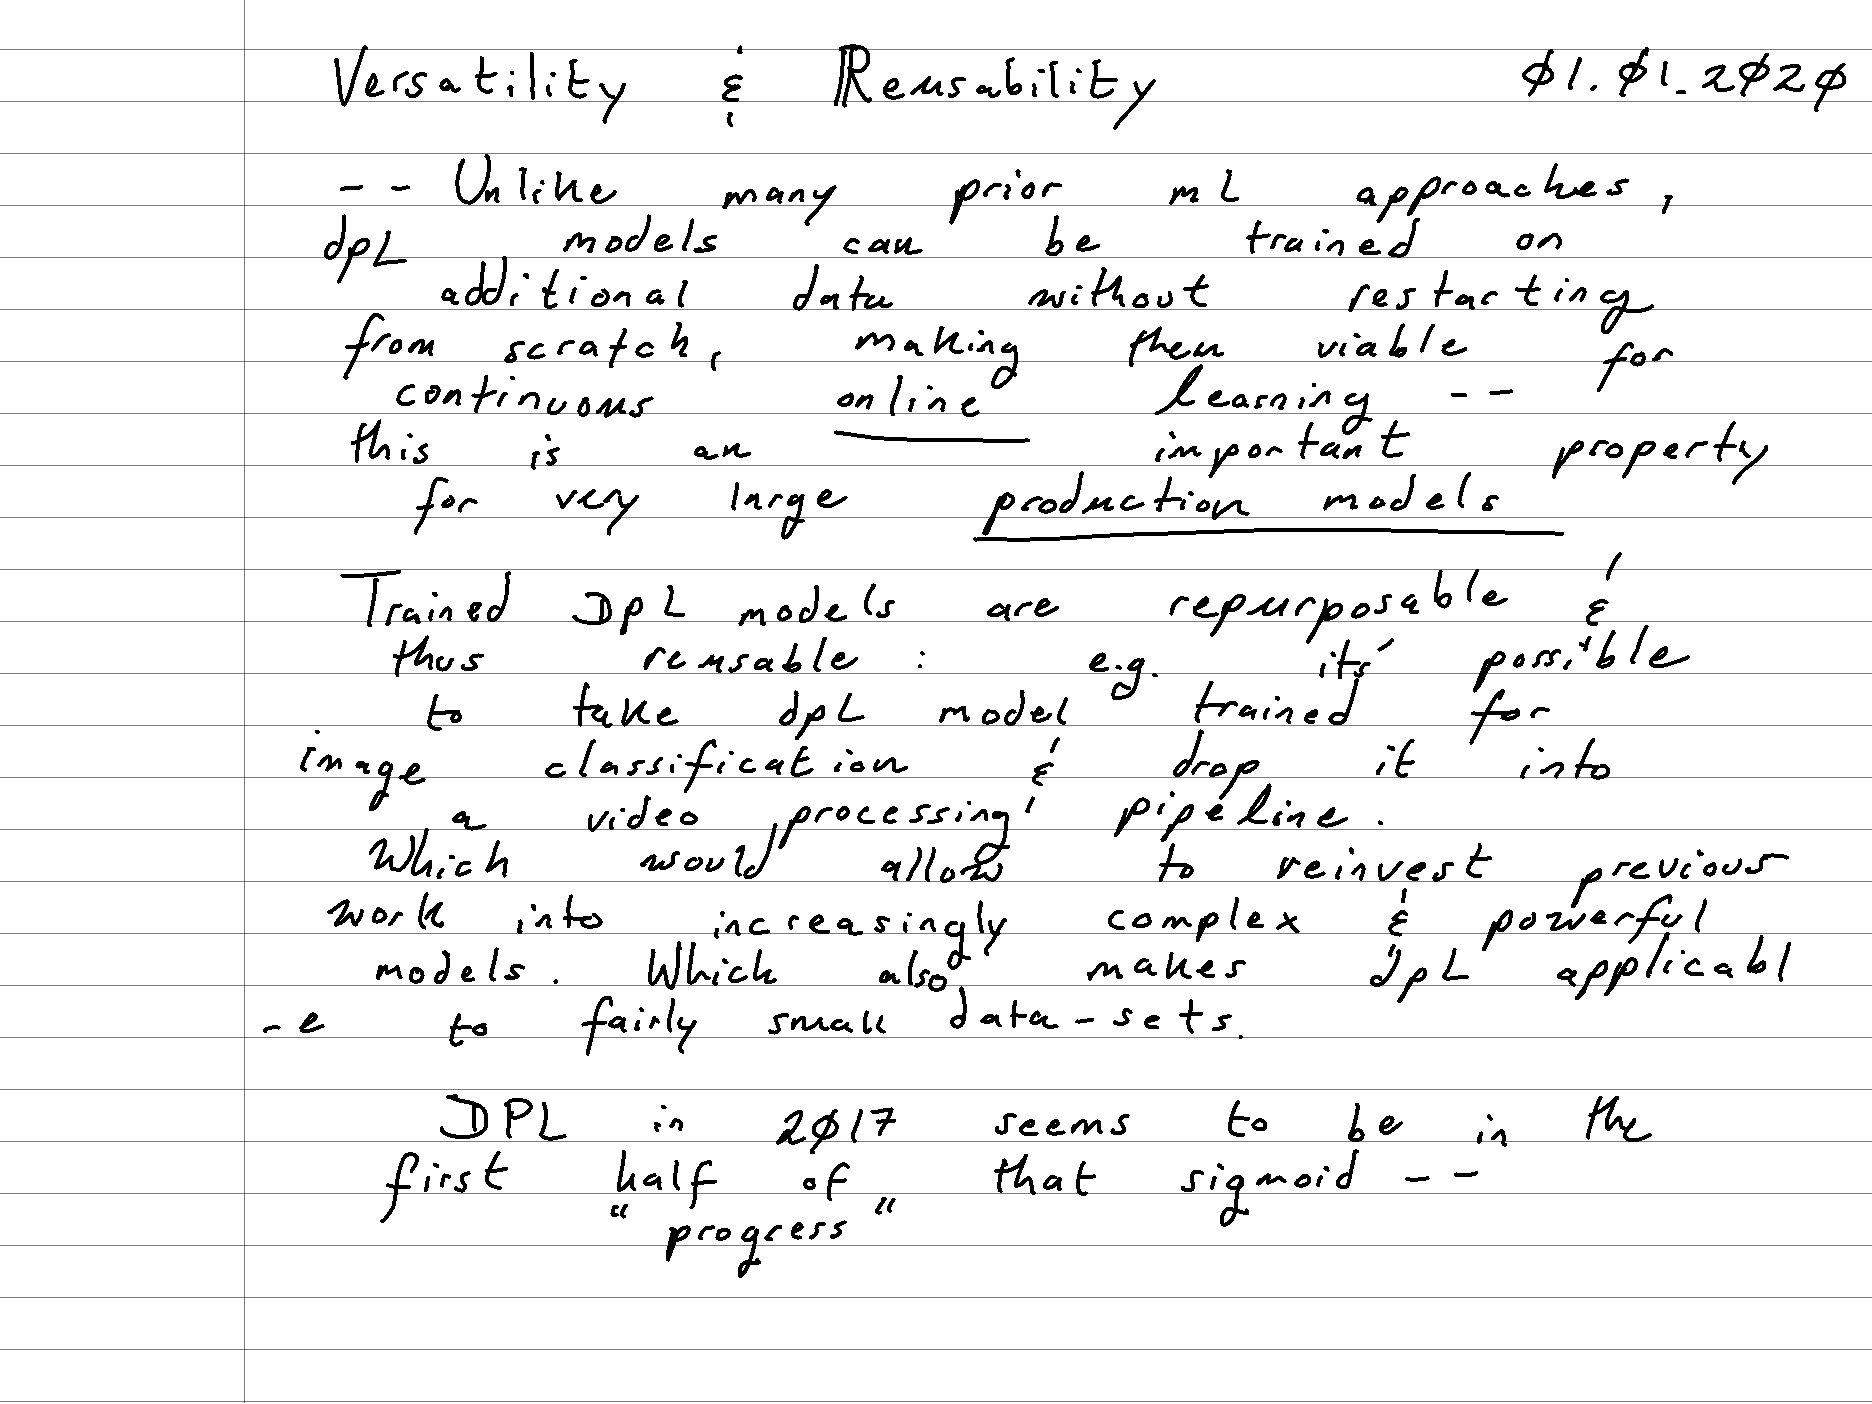 Versatility & Reusability 01.01.2020
-- Unlike many prior mL approaches,
dpL models can be trained on
additional data without restarting
from scratch, making them viable for
continuous online learning --
this is an important property
for very large production models
Trained DpL models are repurposable &
thus reusable : e.g. its' possible
to take dpL model trained for
image classification & drop it into
a video processing pipeline.
Which would allow to reinvest previous
work into increasingly complex & powerful
models. Which also makes dpL applicabl
-e to fairly small data-sets.
DPL in 2017 seems to be in the
first half of that sigmoid --
"progress"